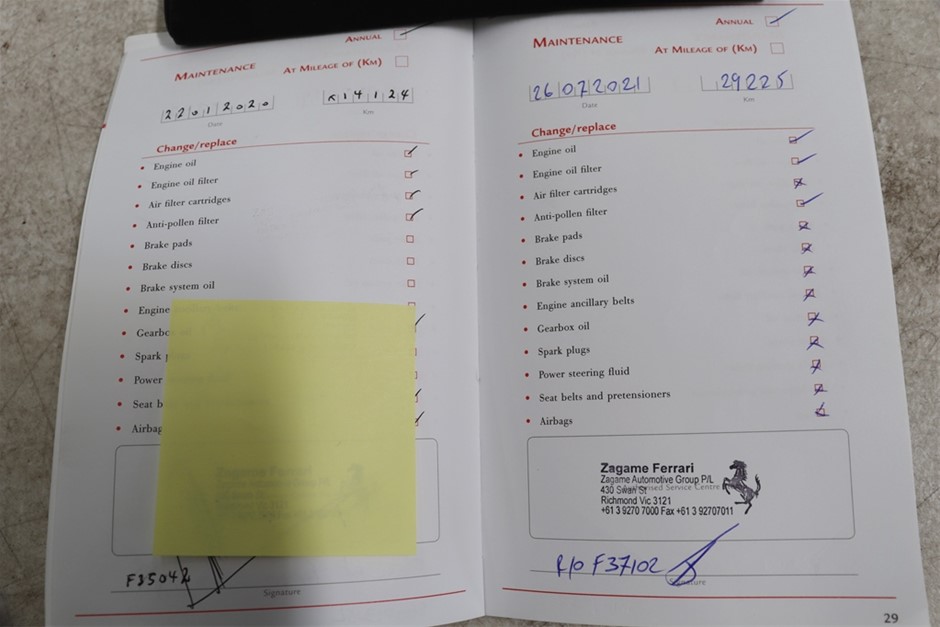 ANNUAL
MAINTENANCE AT MILEAGE OF (KM)
22012020
Date
14124
Km
Change/replace
Engine oil
Engine oil filter
Air filter cartridges
Anti-pollen filter
Brake pads
Brake discs
Brake system oil
Engine
Gearbo
Spark
Power
Seat b
Airbag
F35042
Signature
ANNUAL
MAINTENANCE AT MILEAGE OF (KM)
26072021
Date
29225
Km
Change/replace
Engine oil
Engine oil filter
Air filter cartridges
Anti-pollen filter
Brake pads
Brake discs
Brake system oil
Engine ancillary belts
Gearbox oil
Spark plugs
Power steering fluid
Seat belts and pretensioners
Airbags
Zagame Ferrari
Zagame Automotive Group P/L
430 Swan St
Authorised Service Centre
Richmond Vic 3121
+61 3 9270 7000 Fax +61 3 92707011
R/o F37102
Signature
29